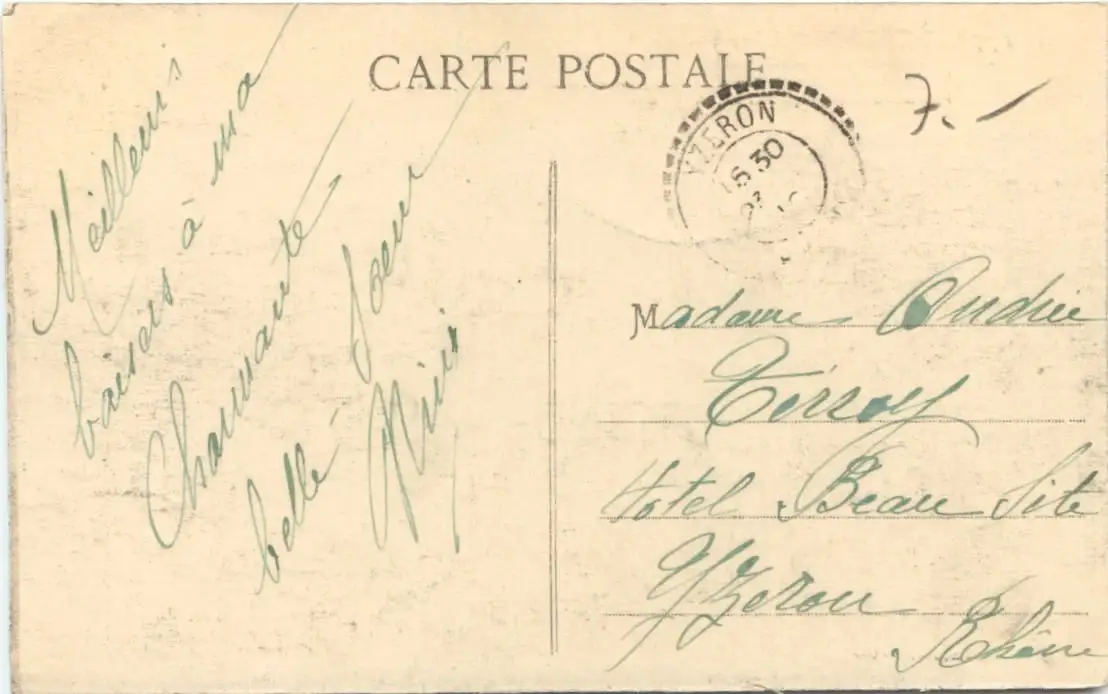 CARTE POSTALE
7.-
YZERON
16 30
Meilleurs
baisers à ma
Charmante
belle soeur
Mimi
Madame Andrée
Terray
Hotel Beau Site
Yzeron
Rhône